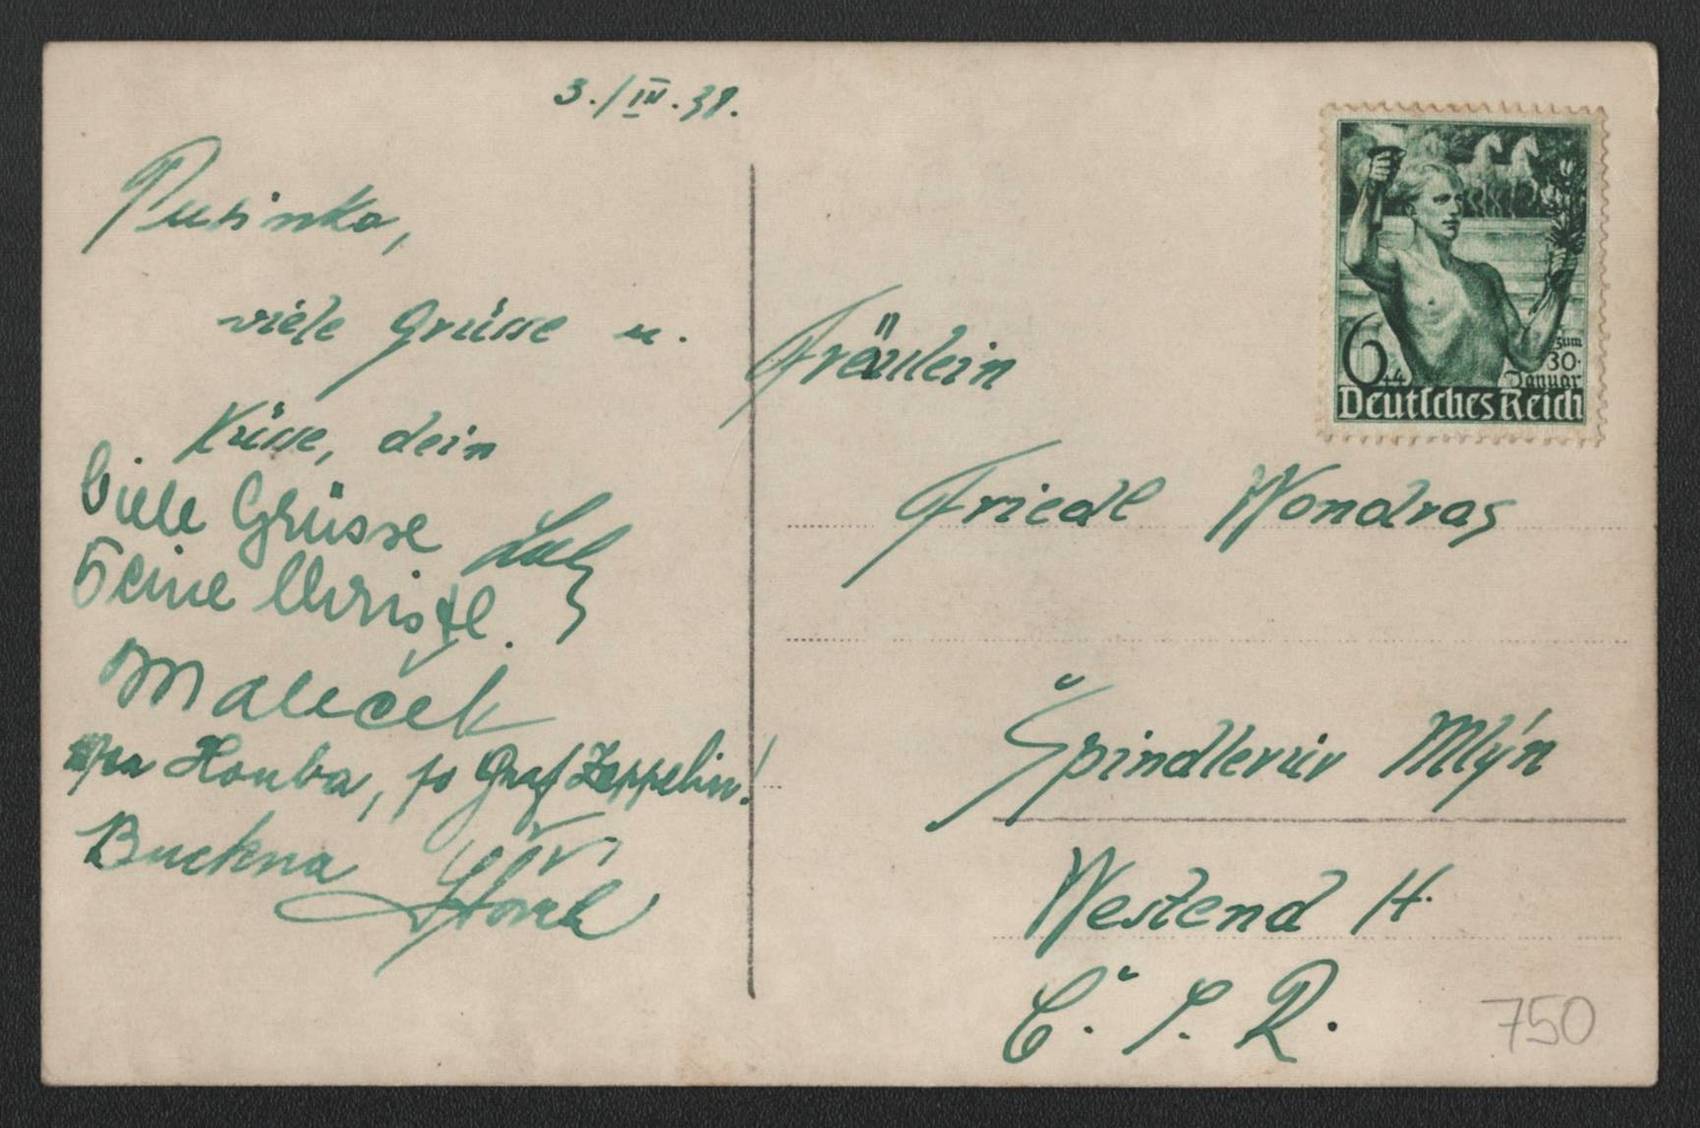 3./IV.38.
Pusinko,
viele Grüsse u.
Küsse, dein
Viele Grüsse
Deine Christl.
Maleček
Houba, Graf Zeppelin!
Buckna
Fräulein
Friedl Wondras
Špindlerův Mlýn
Westend H.
Č. S. R.
750
6+4
zum
30.
Januar
Deutsches Reich